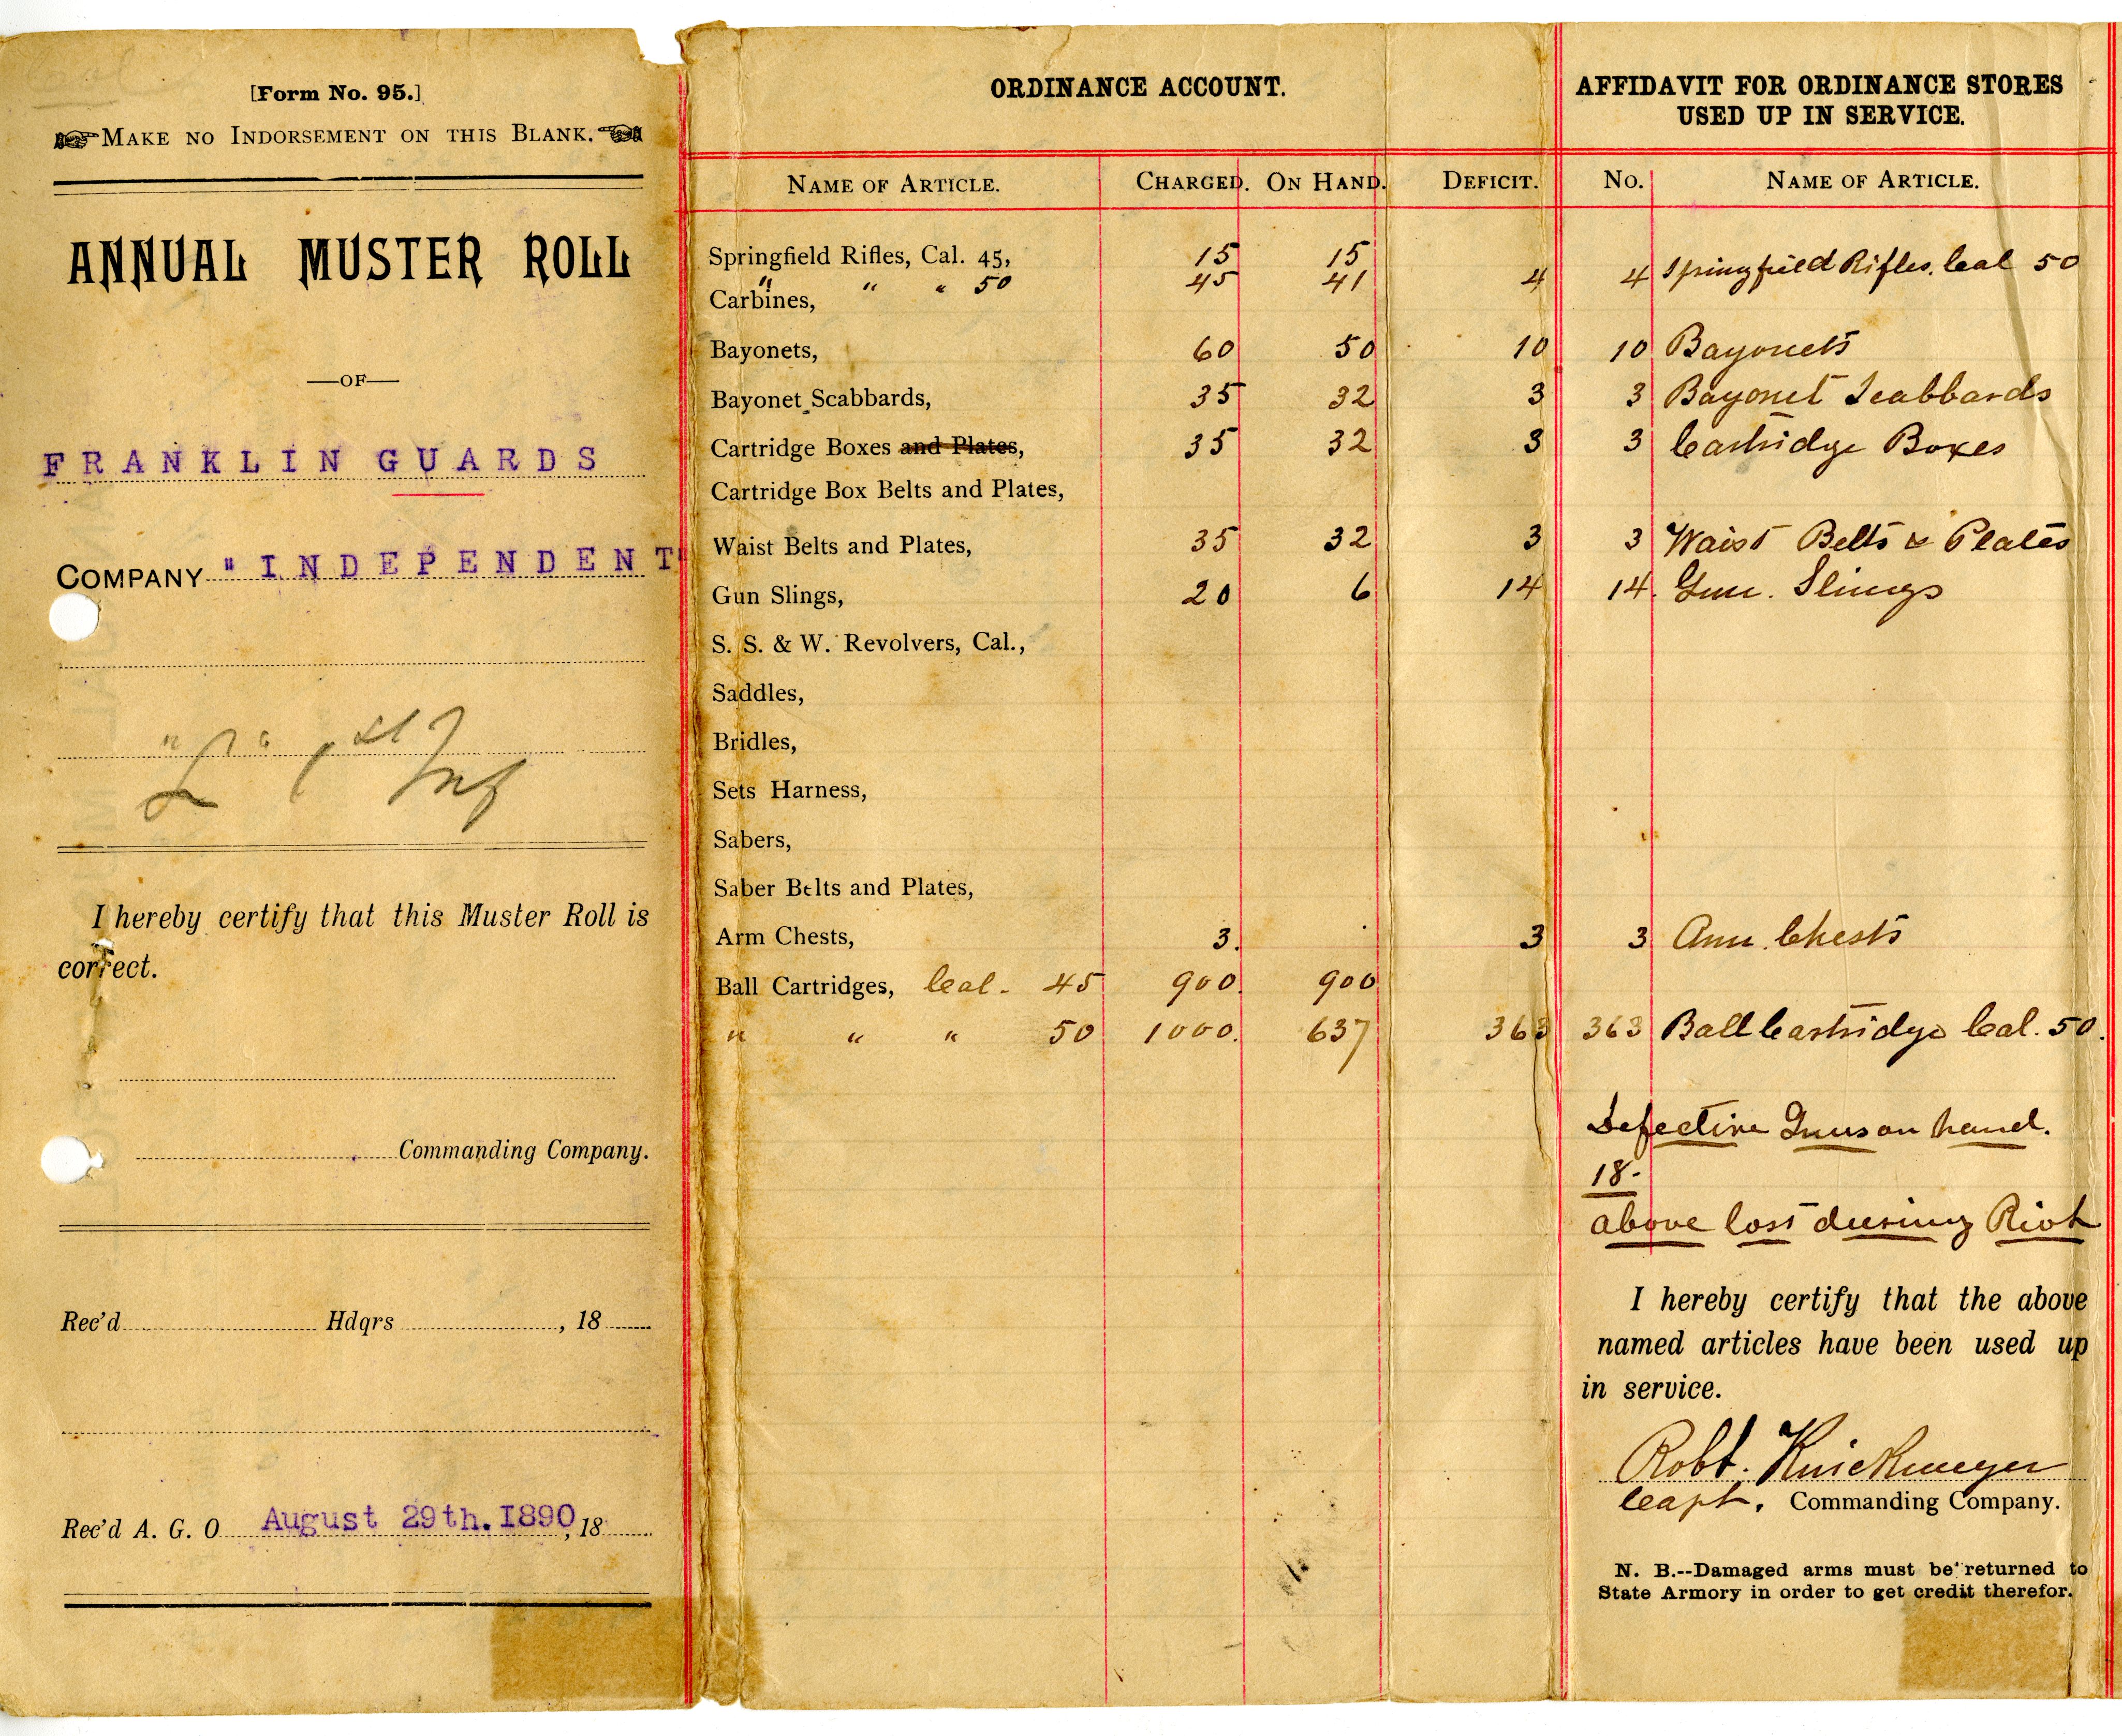 [Form No. 95.]
MAKE NO INDORSEMENT ON THIS BLANK.
ANNUAL MUSTER ROLL
—OF—
FRANKLIN GUARDS
COMPANY "INDEPENDENT"
"L" 1st Inf
I hereby certify that this Muster Roll is
correct.
Commanding Company.
Rec'd Hdqrs , 18
Rec'd A. G. O August 29th. 1890, 18
ORDINANCE ACCOUNT.
NAME OF ARTICLE. CHARGED. ON HAND. DEFICIT.
Springfield Rifles, Cal. 45, 15 15
" " " 50 45 41 4
Carbines,
Bayonets, 60 50 10
Bayonet Scabbards, 35 32 3
Cartridge Boxes and Plates, 35 32 3
Cartridge Box Belts and Plates,
Waist Belts and Plates, 35 32 3
Gun Slings, 20 6 14
S. S. & W. Revolvers, Cal.,
Saddles,
Bridles,
Sets Harness,
Sabers,
Saber Belts and Plates,
Arm Chests, 3. 3
Ball Cartridges, Cal. 45 900. 900
" " " 50 1000. 637 363
AFFIDAVIT FOR ORDINANCE STORES
USED UP IN SERVICE.
NO. NAME OF ARTICLE.
4 Springfield Rifles. Cal 50
10 Bayonets
3 Bayonet Scabbards
3 Cartridge Boxes
3 Waist Belts & Plates
14. Gun. Slings
3 Arm. Chests
363 Ball Cartridge Cal. 50.
Defective Guns on hand.
18-
above lost during Riot
I hereby certify that the above
named articles have been used up
in service.
Robt. Knickmeyer
Capt. Commanding Company.
N. B.--Damaged arms must be returned to
State Armory in order to get credit therefor.